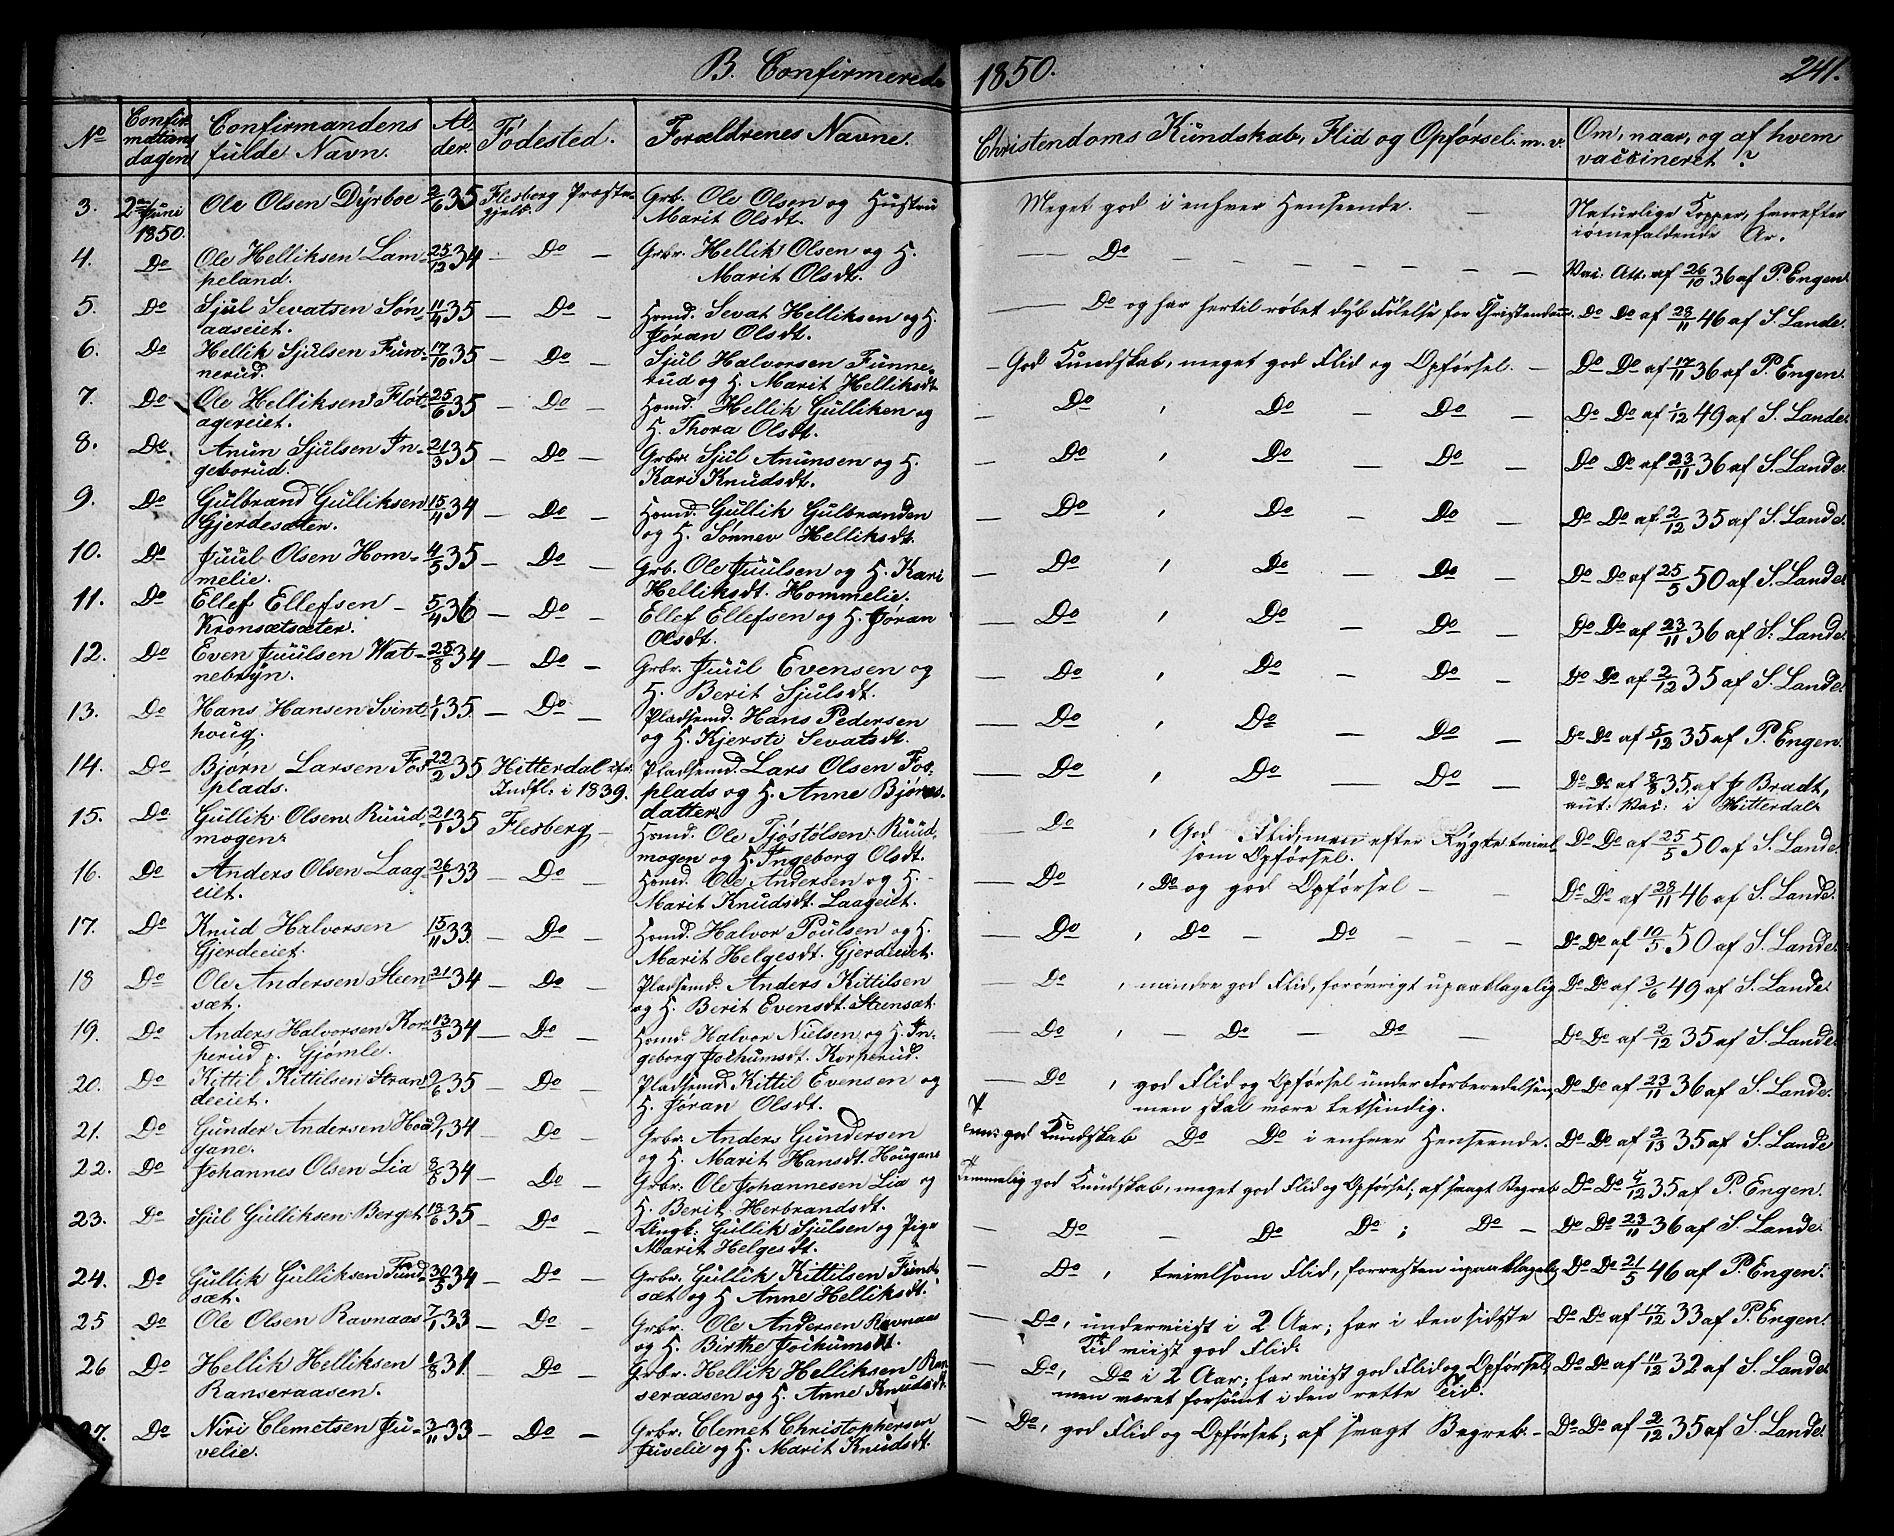 B. Confirmerede 1850. 241.
No Confirmations dagen Confirmandens fulde Navn. Alder. Fødested. Forældrenes Navne. Christendoms Kundskab, Flid og Opførsel. m. v. Om, naar, og af hvem vaccineret?
3. 2den Juni 1850. Ole Olsen Dyrboe 2/6 35 Flesberg Præste- Grb. Ole Olsen og Hustru Meget god i enhver Henseende. Naturlige Kopper, hvorefter
gjeld. Marit Olsdt. iøinefaldende Ar.
4. Do Ole Helliksen Lam- 25/12 34 Do Grbr. Hellik Olsen og H. Do Vac. Att. af 26/10 36 af P. Engen.
peland. Marit Olsdt.
5. Do Sjul Sevatsen Søn- 11/4 35 Do Hsmd. Sevat Helliksen og H. Do og har hertil røbet dyb Følelse for Christendom. Do Do af 28/11 46 af S. Lande.
aaseiet. Jøran Olsdt.
6. Do Hellik Sjulsen Funne- 17/10 35 Do Sjul Halvorsen Funne- God Kundskab, meget god Flid og Opførsel. Do Do af 17/11 36 af P. Engen.
nerud. rud og H. Marit Helliksdt.
7. Do Ole Helliksen Fløt- 25/6 35 Do Hsmd. Hellik Gulliken og Do , Do Do Do Do af 1/12 49 af S. Lande.
agereiet. H. Thora Olsdt.
8. Do Anun Sjulsen In- 21/3 35 Do Grbr. Sjul Anunsen og H. Do , Do Do Do Do af 23/11 36 af S. Lande.
geborud. Kari Knudsdt.
9. Do Gulbrand Gulliksen 15/11 34 Do Hsmd. Gullik Gulbranden Do , Do Do Do Do af 2/12 35 af S. Lande.
Gjerdesæter. og H. Sønnev Helliksdt.
10. Do Juul Olsen Hom- 4/5 35 Do Grb. Ole Juulsen og H. Kari Do , Do Do Do Do af 25/5 50 af S. Lande.
melie. Helliksdt. Hommelie.
11. Do Ellef Ellefsen 5/4 36 Do Ellef Ellefsen og H. Jøran Do , Do Do Do Do af 23/11 36 af S. Lande.
Kronsætsæter. Olsdt.
12. Do Even Juulsen Wat- 25/8 34 Do Grbr. Juul Evensen og Do , Do Do Do Do af 2/12 35 af S. Lande.
nebryn. H. Berit Sjulsdt.
13. Do Hans Hansen Svint- 1/1 35 Do Pladsemd. Hans Pedersen Do , Do Do Do Do af 5/12 35 af P. Engen.
houg. og H. Kjersti Sevatsdt.
14. Do Bjørn Larsen Fos- 22/2 35 Hitterdal Pladsemd. Lars Olsen Fos- Do , Do Do Do Do af 8/8 35 af J Bradt,
plads. Indfl. i 1839. plads og H. Anne Bjørns- aut. Vac. i Hitterdal.
datter.
15. Do Gullik Olsen Ruud- 21/1 35 Flesberg Hsmd. Ole Tjøstolsen Ruud- Do , God Flid, men efter Rygte tvivl- Do Do af 25/5 50 af S. Lande.
mogen. mogen og H. Ingeborg Olsdt. som Opførsel.
16. Do Anders Olsen Laag- 26/1 33 Do Hsmd. Ole Andersen og H. Do , Do og god Opførsel Do Do af 28/11 46 af S. Lande.
eiet. Marit Knudsdt. Laageiet.
17. Do Knud Halvorsen 15/11 33 Do Hsmd. Halvor Poulsen og H. Do , Do Do Do Do af 10/5 50 af S. Lande.
Gjerdeeiet. Marit Helgesdt. Gjerdeeiet.
18 Do Ole Andersen Steen- 21/1 34 Do Pladsemd. Anders Kittilsen Do , mindre god Flid, forøvrigt upaaklagelig Do Do af 3/6 49 af S. Lande.
sæt. og H. Berit Evensdt. Steensæt.
19. Do Anders Halvorsen Kor- 13/3 34 Do Hsmd. Halvor Nielsen og H. In- Do , Do Do Do Do af 2/12 35 af S. Lande.
perud p. Gjømle. geborg Jochumsdt. Korperud.
20. Do Kittil Kittilsen Stran- 9/6 35 Do Pladsemd. Kittil Evensen og Do , god Flid og Opførsel under Forberedelsen, Do Do af 23/11 36 af S. Lande.
deeiet. H. Jøran Olsdt. men skal være letsindig.
21. Do Gunder Andersen Hou- 9/1 34 Do Grbr. Anders Gundersen god Kundskab Do Do i enhver Henseende. Do Do af 2/13 35 af S. Lande
gane. og H. Marit Hansdt. Hougane
22. Do Johannes Olsen Lia 8/8 34 Do Grbr. Ole Johannesen Lia og Temmelig god Kundskab, meget god Flid og Opførsel; af svagt Begreb Do Do 5/12 35 af P. Engen.
H. Berit Herbrandsdt.
23. Do Sjul Gulliksen Berget 18/6 35 Do Ungk. Gullik Sjulsen og Pige Do Do Do ; Do Do Do 23/11 36 af S. Lande.
Marit Helgesdt.
24. Do Gullik Gulliksen Fund- 30/5 34 Do Grbr. Gullik Kittilsen Fund- Do , tvivlsom Flid, forresten upaaklagelig Do Do 21/5 46 af P. Engen.
sæt. sæt og H Anne Helliksdt.
25 Do Ole Olsen Ravnaas 7/1 33 Do Grbr. Ole Andersen Ravnaas Do, underviist i 2 Aar; har i den sidste Do Do af 17/12 33 af P. Engen.
og H. Birthe Jochumsdt. Tid viist god Flid.
26 Do Hellik Helliksen 1/8 31. Do Grbr. Hellik Helliksen Ran- Do, Do i 2 Aar; har viist god Flid og Opførsel; Do Do af 11/12 32 af S. Lande.
Ranseraasen. seraasen og H. Anne Knudsdt. men været forsømt i den rette Tid.
27. Do Niri Clemetsen Ju- 3/11 33 Do Grbr. Clemet Christophersen Do, god Flid og Opførsel; af svagt Begreb. Do Do af 2/12 35 af S. Lande.
velie. Juvelie og H. Marit Knudsdt.